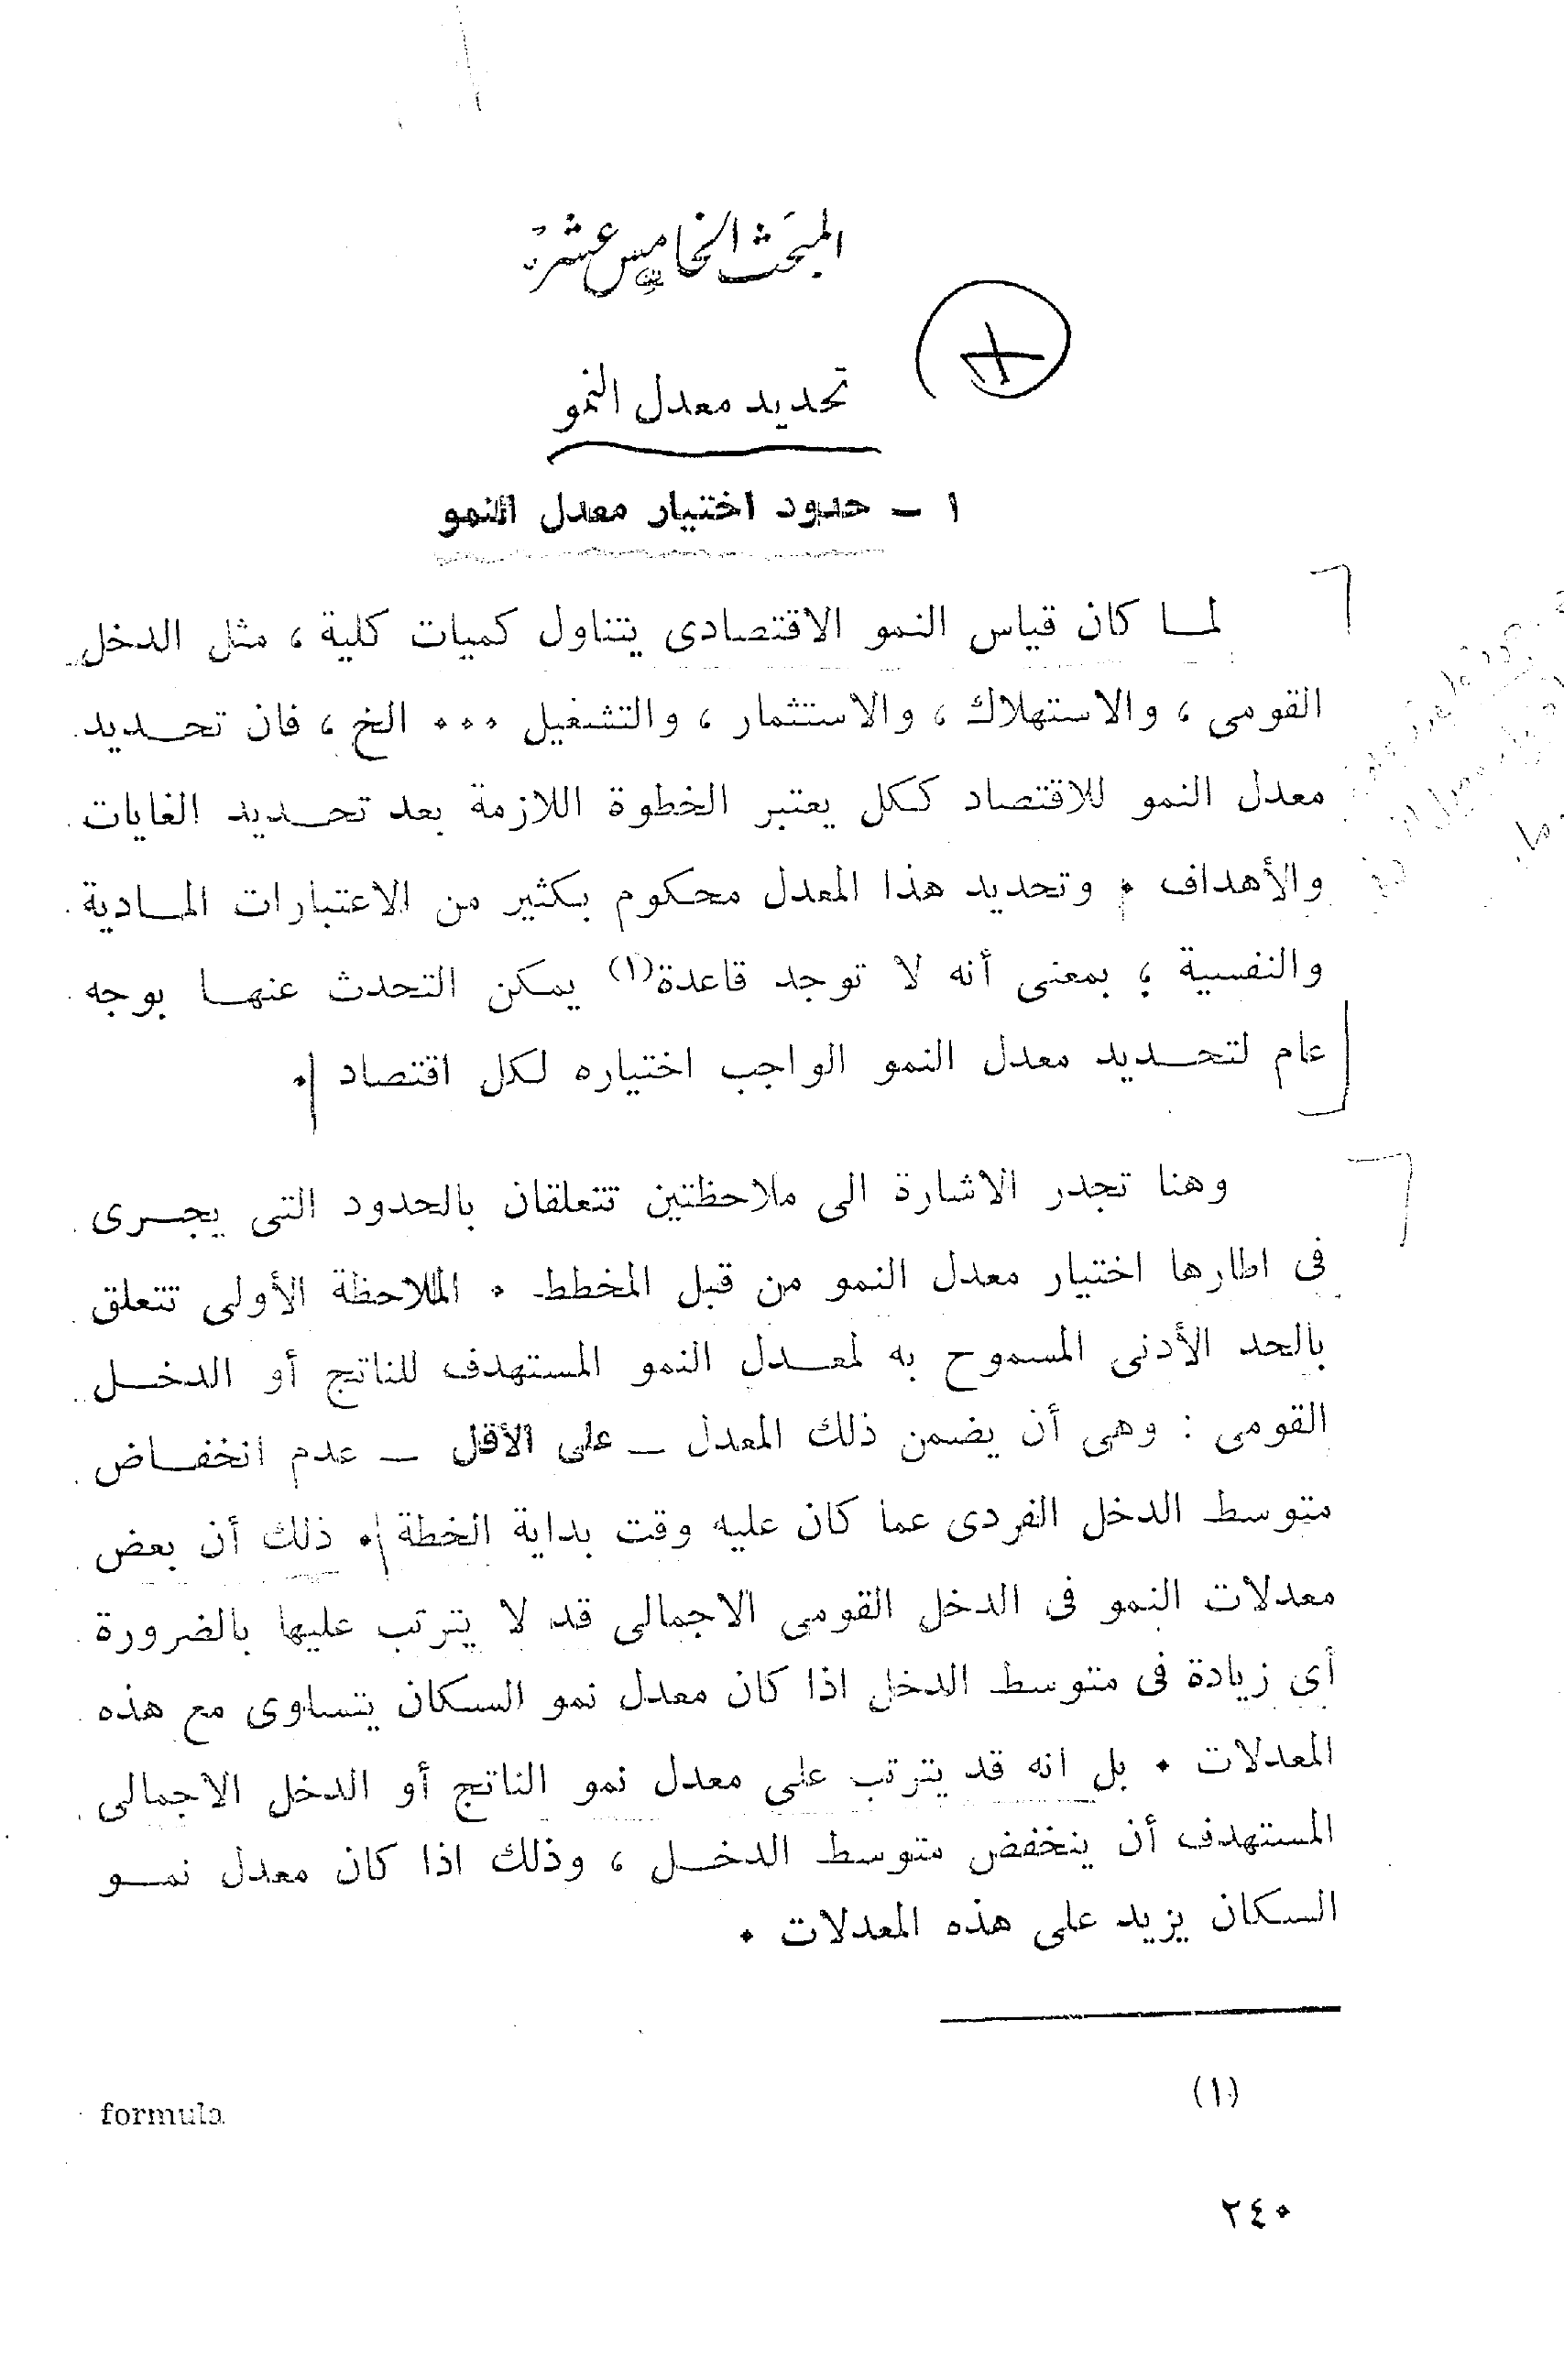 المبحث الخامس عشر
تحديد معدل النمو
١ ـ حدود اختيار معدل النمو
لمـا كان قياس النمو الاقتصادى يتناول كميات كلية ، مثل الدخل
القومى ، والاستهلاك ، والاستثمار ، والتشغيل ٠٠٠ الخ ، فان تحـديد
معدل النمو للاقتصاد ككل يعتبر الخطوة اللازمة بعد تحـديد الغايات
والأهداف ٠ وتحديد هذا المعدل محكوم بكثير من الاعتبارات المـادية
والنفسية ؛ بمعنى أنه لا توجد قاعدة(١) يمكن التحدث عنهـا بوجه
عام لتحـديد معدل النمو الواجب اختياره لكل اقتصاد ٠
وهنا تجدر الاشارة الى ملاحظتين تتعلقان بالحدود التى يجـرى
فى اطارها اختيار معدل النمو من قبل المخطط ٠ الملاحظة الأولى تتعلق
بالحد الأدنى المسموح به لمعـدل النمو المستهدف للناتج أو الدخـل
القومى : وهى أن يضمن ذلك المعدل ـ على الأقل ـ عدم انخفـاض
متوسط الدخل الفردى عما كان عليه وقت بداية الخطة ٠ ذلك أن بعض
معدلات النمو فى الدخل القومى الاجمالى قد لا يترتب عليها بالضرورة
أى زيادة فى متوسط الدخل اذا كان معدل نمو السكان يتساوى مع هذه
المعدلات ٠ بل انه قد يترتب على معدل نمو الناتج أو الدخل الاجمالى
المستهدف أن ينخفض متوسط الدخـل ، وذلك اذا كان معدل نمـو
السكان يزيد على هذه المعدلات ٠
(١) formula
٢٤٠